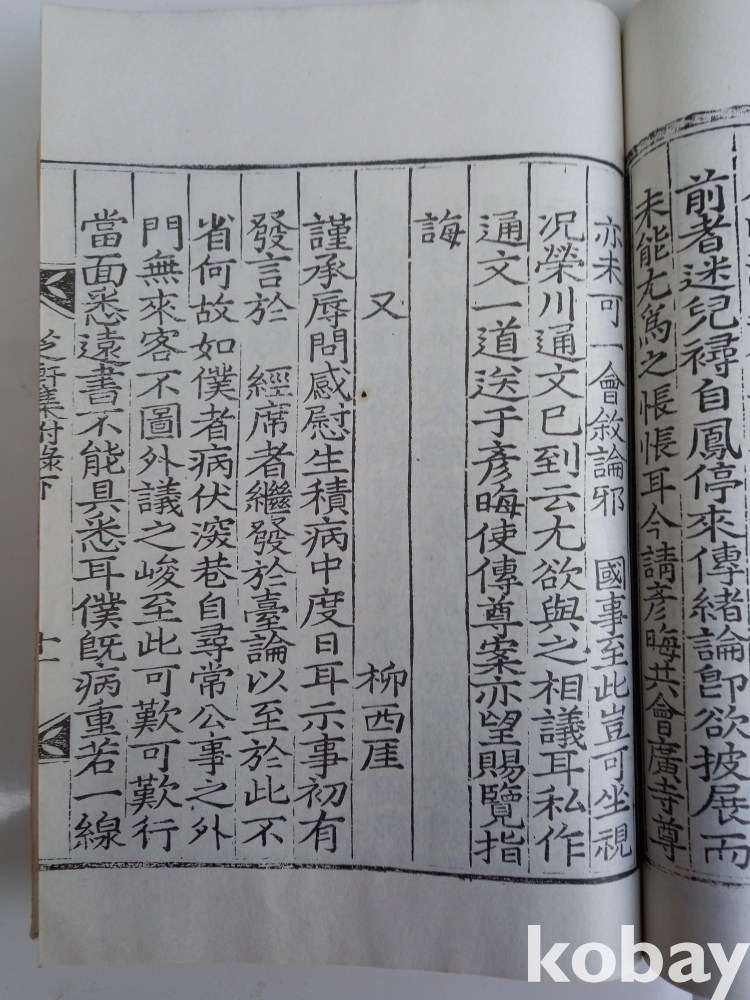 前者迷兒尋自鳳停來傳緖論卽欲披展而
未能尤爲之悵悵耳今請彦晦共會廣寺尊
亦未可一會敘論邪 國事至此豈可坐視
况榮川通文已到云尤欲與之相議耳私作
通文一道送于彦晦使傳尊案亦望賜覽指
誨
又 柳西厓
謹承辱問感慰生積病中度日耳示事初有
發言於 經席者繼發於臺論以至於此不
省何故如僕者病伏深巷自尋常公事之外
門無來客不圖外議之峻至此可歎可歎行
當面悉遠書不能具悉耳僕旣病重若一線
芝軒集附錄下 十一
kobay